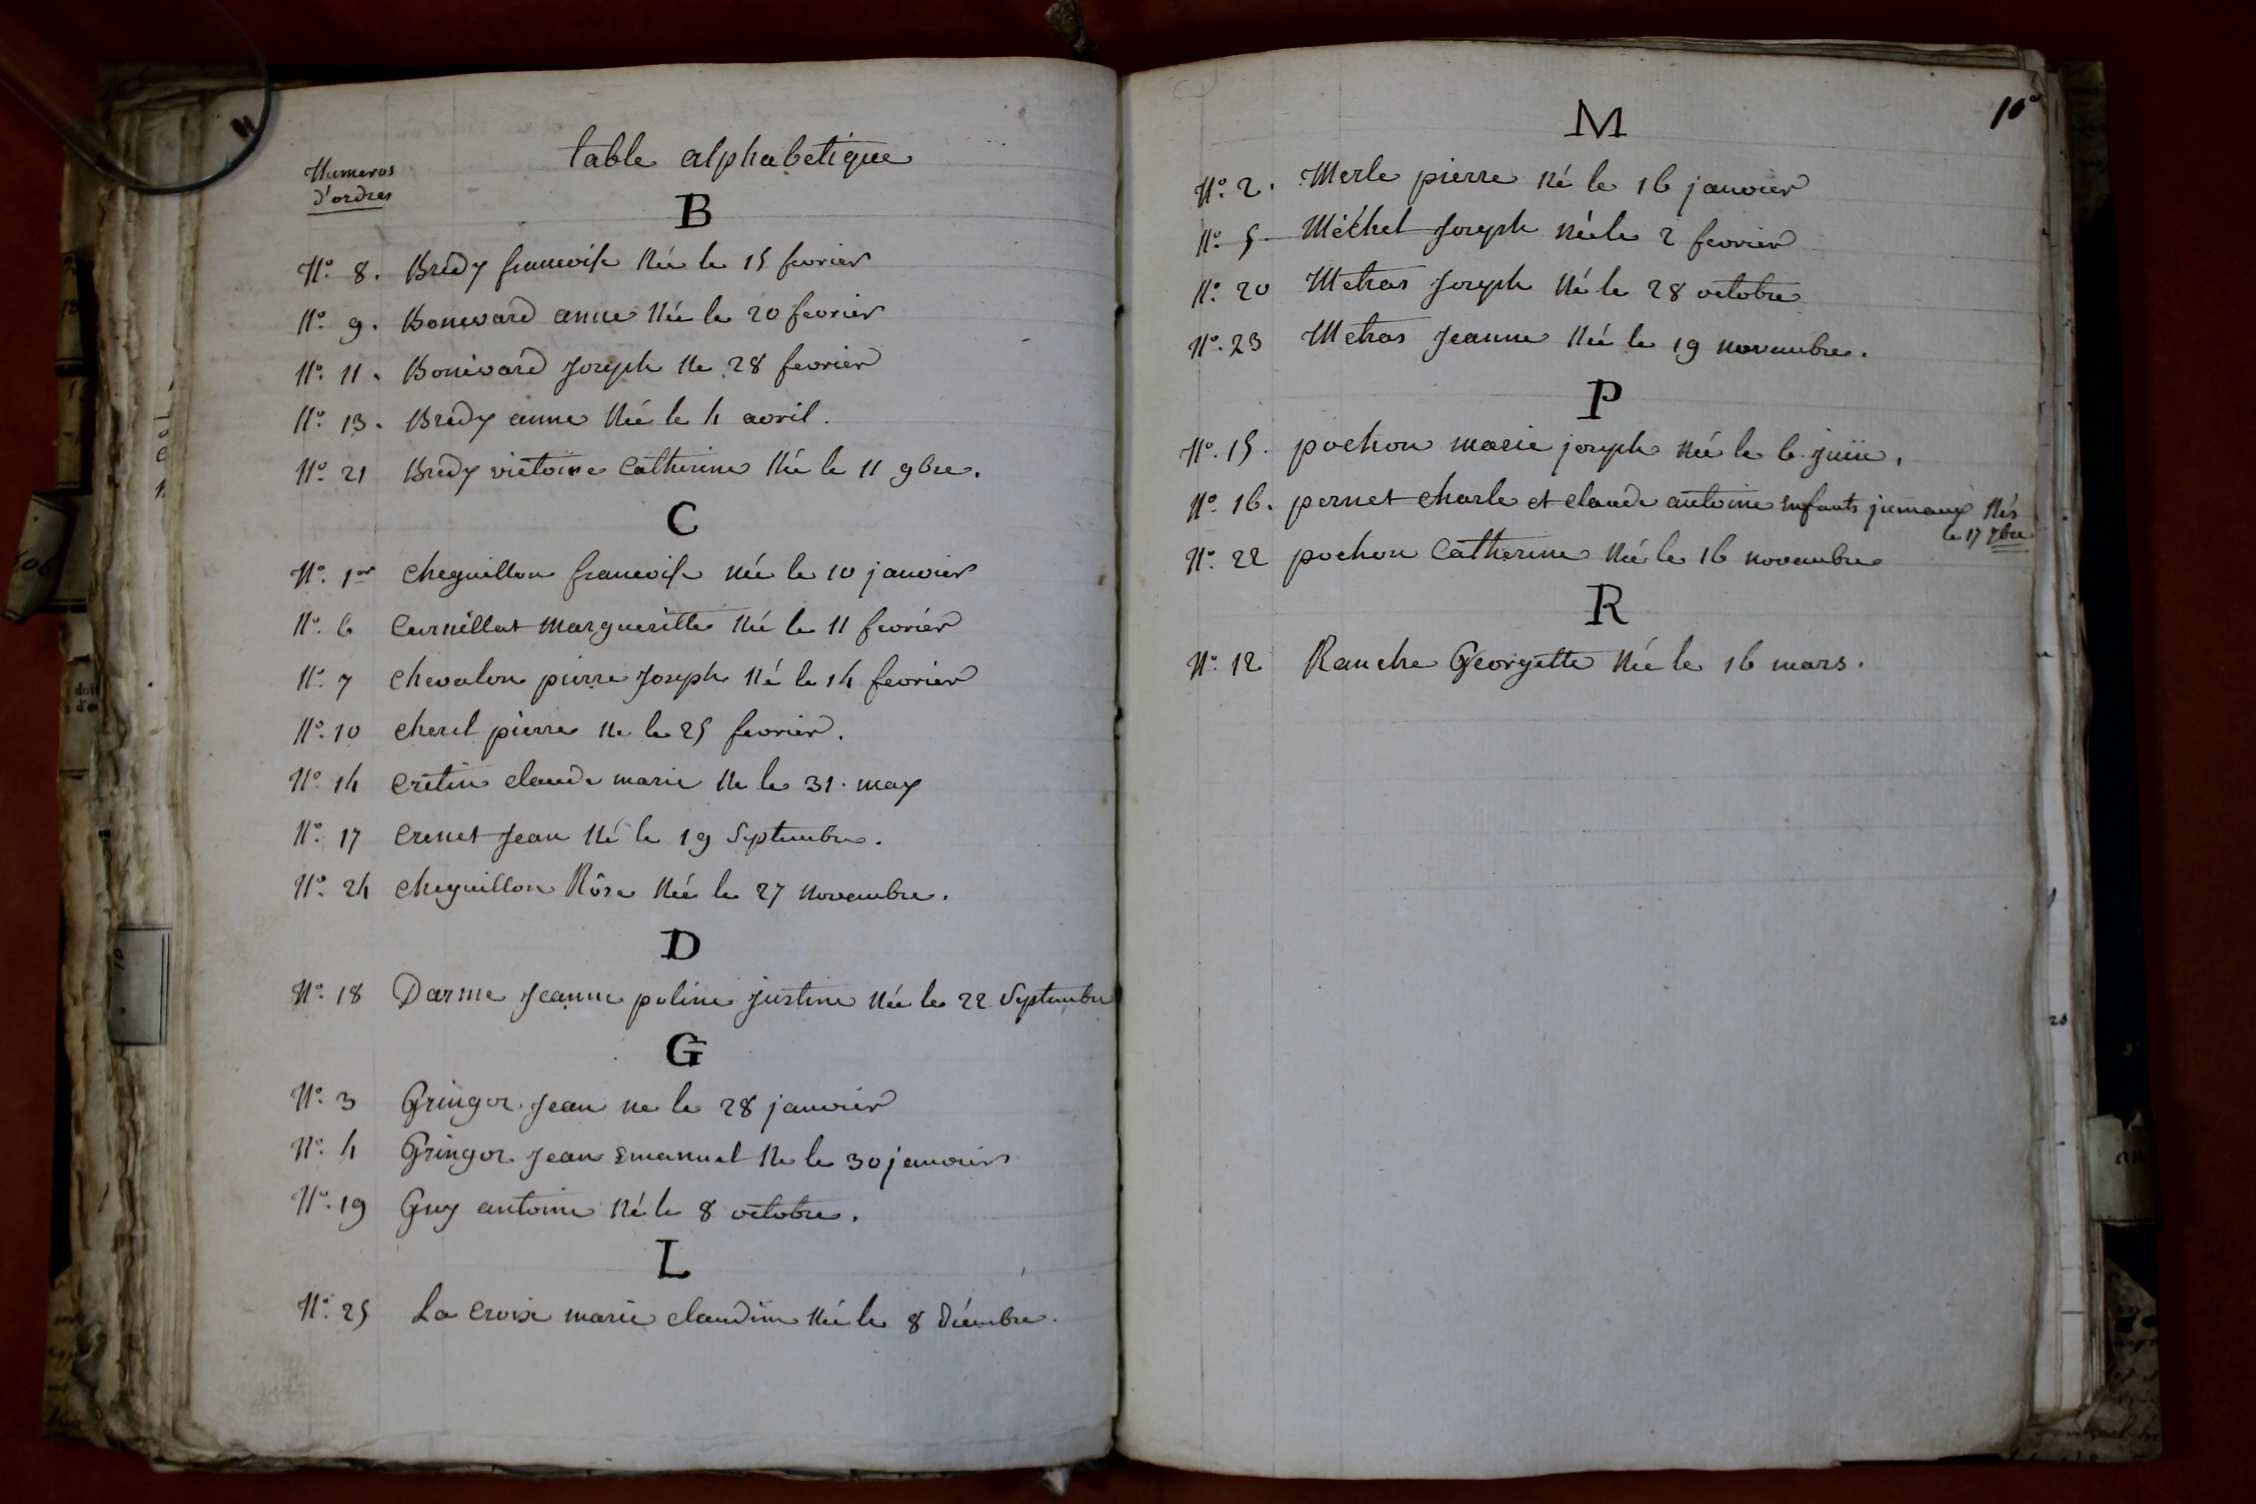 table alphabetique
Numeros
d'ordres
B
N.º 8. Bredy francoise Née le 15 fevrier
N.º 9. Bonivard anne Née le 20 fevrier
N.º 11. Bonivard Joseph Ne 28 fevrier
N.º 13. Bredy anne Née le 4 avril.
N.º 21 Bredy victoire Catherine Née le 11 9bre.
C
N.º 1er cheguillon francoise née le 10 janvier
N.º 6 Curnillat Margueritte Née le 11 fevrier
N.º 7 chevalon pierre Joseph Né le 14 fevrier
N.º 10 cheril pierre Ne le 25 fevrier.
N.º 14 Cretin claude marie Ne le 31. may
N.º 17 Crenet Jean Né le 19 Septembre.
N.º 24 cheguillon Rôse Née le 27 Novembre.
D
N.º 18 Darme Jeanne poline Justine Née le 22 Septembre
G
N.º 3 Gringoz. Jean ne le 28 janvier
N.º 4 Gringoz. Jean Emanuel Ne le 30 janvier
N.º 19 Guy antoine Né le 8 octobre.
L
N.º 25 La Croix marie claudine Née le 8 Décembre.
10
M
N.º 2. Merle pierre Né le 16 janvier
N.º 5. Méthel Joseph Né le 2 fevrier
N.º 20 Metras Joseph Né le 28 octobre
N.º 23 Metras Jeanne Née le 19 novembre.
P
N.º 15. pochon marie joseph Née le 6. Juin.
N.º 16. pernet charle et claude antoine Enfants jumeaux Nés
le 17 7bre
N.º 22 pochon Catherine Née le 16 novembre
R
N.º 12 Ranche Georgette Née le 16 mars.